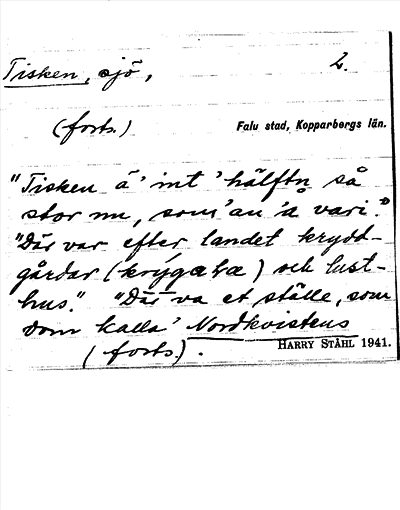 Tisken, sjö, 2.
(forts.) Falu stad, Kopparbergs län.
"Tisken ä' int' hälftn så
stor nu, som'an 'a vari."
"Där var efter landet krydd-
gårdar (krýgaɫa) och lust-
hus." "Där va et ställe, som
dom kalla' Nordkvistens
(forts.).
HARRY STÅHL 1941.